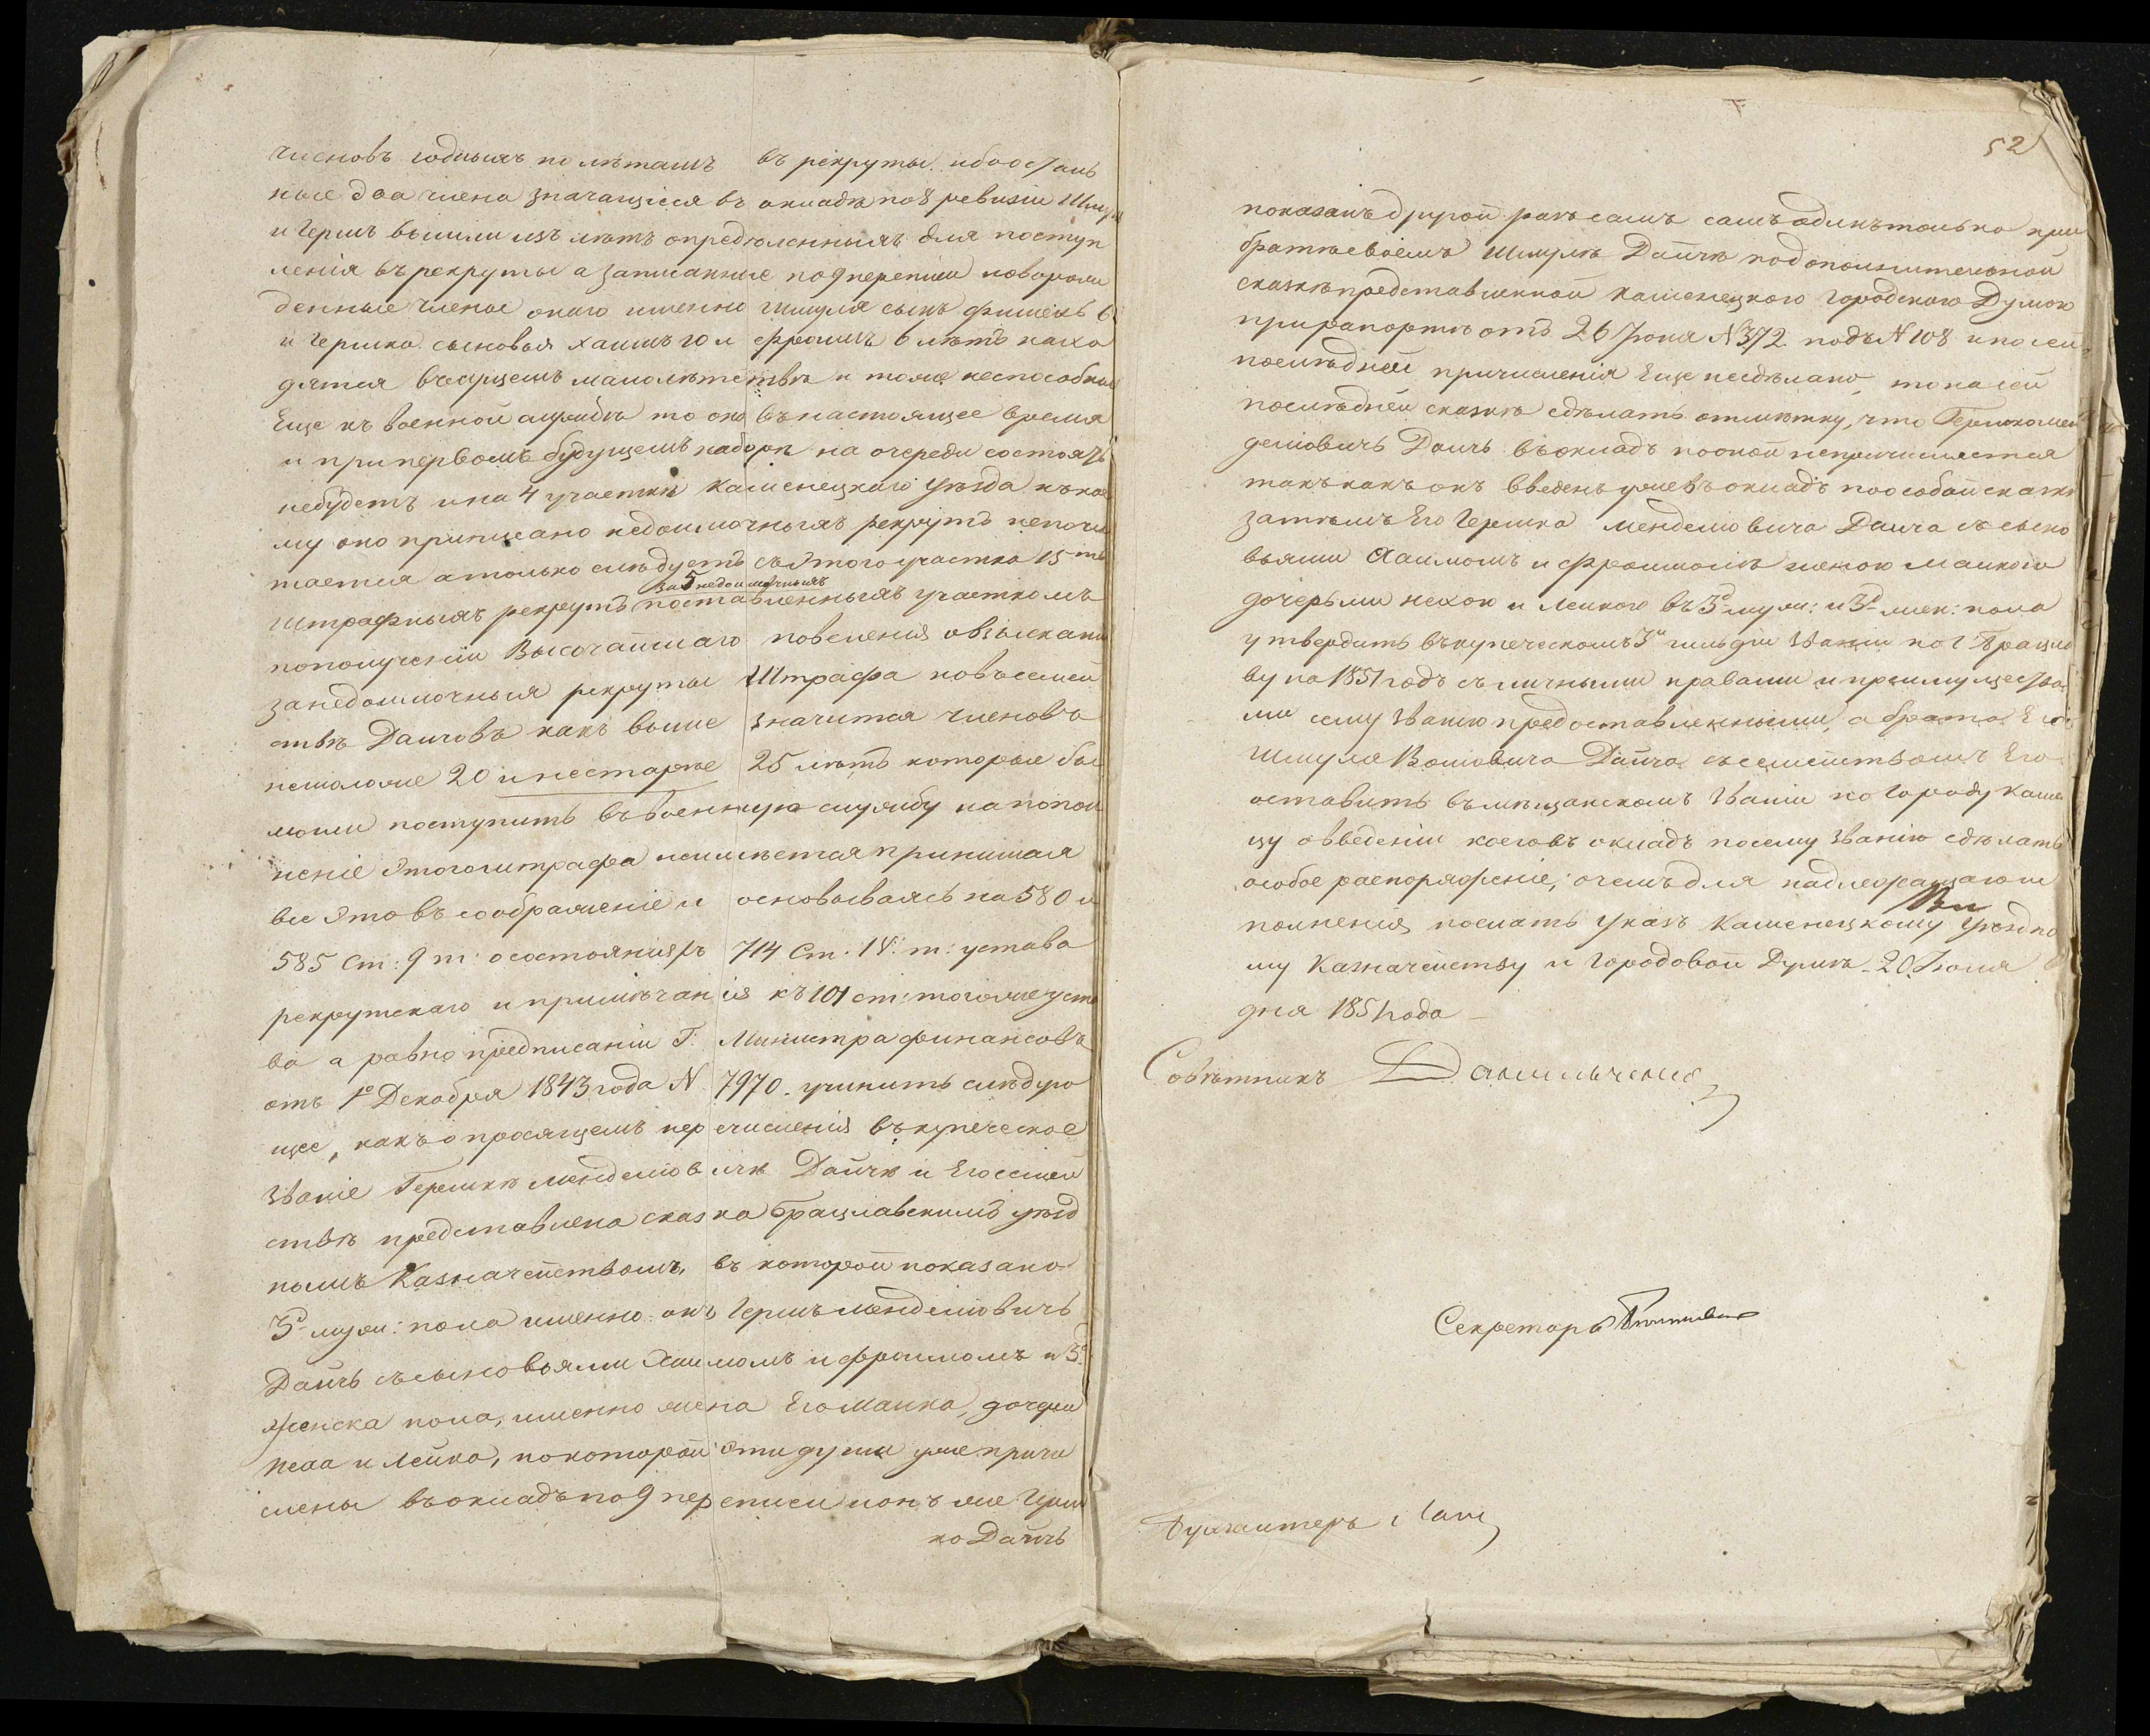 членовъ годныхъ по лѣтамъ въ рекруты ибо осталь
ные два члена значащіеся въ окладѣ по 8 ревизіи Шмуль
и Гершъ вышли изъ лѣтъ опредѣленныхъ для поступ
ленія въ рекруты а записанные по 9 переписи новорож
денные члены онаго именно Шмуля сынъ Фишель 6
и Гершка сыновья Хаимъ 10 и Фроимъ 6 лѣтъ нахо
дятся въ сущемъ малолѣтствѣ и тоже неспособны
Еще къ военной службѣ то оно въ настоящее время
и при первомъ будущемъ наборѣ на очереди состоять
небудетъ и на 4 участкѣ Каменецкаго уѣзда къ кое
му оно приписано недоимочныхъ рекрутъ непочи
тается а только слѣдуетъ съ этого участка 15ть
за 5 недоимочныхъ
штрафныхъ рекрутъ поставленныхъ участкомъ
по полученіи Высочайшаго повеленія о взысканіи
за недоимочныя рекруты штрафа но въ семей
ствѣ Даичовъ какъ выше значится членовъ
немоложе 20 и нестарѣе 25 лѣтъ которые бы
могли поступить въ военную службу на попол
неніе этого штрафа неимѣется принимая
все это въ соображеніе и основываясь на 580 и
585 Ст: 9 т: о состояніяхъ 714 Ст. IV. т: устава
рекрутскаго и примѣчанія къ 101 ст: тогоже уста
ва а равно предписаніи Г. Министра финансовъ
отъ 1го Декабря 1843 года N 7970. учинить слѣдую
щее, какъ о просящемъ перечисленія въ купеческое
званіе Гершкѣ Менделіовичѣ Дайчѣ и Его семей
ствѣ представлена сказка Брацлавскимъ уѣзд
нымъ Казначействомъ, въ которой показано
3ъ муж: пола именно: онъ Гершъ Менделіовичъ
Дайчъ съ сыновьями Хаимомъ и Фроимомъ и 3ъ
женска пола, именно жена Его Малка, дочери
Неха и Лейка, по которой эти души уже причи
слены въ окладъ по 9 переписи и онъ же Герш
ко Дайчъ
52
показанъ другой разъ самъ самъ одинъ только при
братѣ своемъ Шмулѣ Дайчѣ по дополнительной
сказкѣ представленной Каменецкого Городскою Думою
при рапортѣ отъ 26 Іюня N 372. подъ N 108 и по сей
послѣдней причисленія Еще несдѣлано, то на сей
послѣдней сказкѣ сдѣлать отмѣтку, что Гершко Мен
деліовичъ Даичъ въ окладъ по оной непричисляется
такъ какъ онъ введенъ уже въ окладъ по особой сказкѣ
затѣмъ Его Гершка Менделіовича Даича съ сыно
вьями Хаимомъ и Фроимомъ женою Малкою и
дочерьми Нехою и Лейкою въ 3ъ муж: и 3ъ жен: пола
утвердить въ купеческомъ 3й гильдіи званіи по г. Брацла
ву на 1851 годъ съ личными правами и преимущества
ми сему званію предоставленными, а брата Его
Шмуля Волiовича Дайча съ семействомъ Его
оставить въ мѣщанскомъ званіи по городу Камен
цу о введеніи коего въ окладъ по сему званію сдѣлать
особое распоряженіе, о чемъ для надлежащаго ис
полненія послать указъ Каменецкому Уѣздно
му Казначейству и Городовой Думѣ. 20 Іюля
дня 1851 года
Совѣтникъ Данильченко
Секретарь
Бухгалтеръ